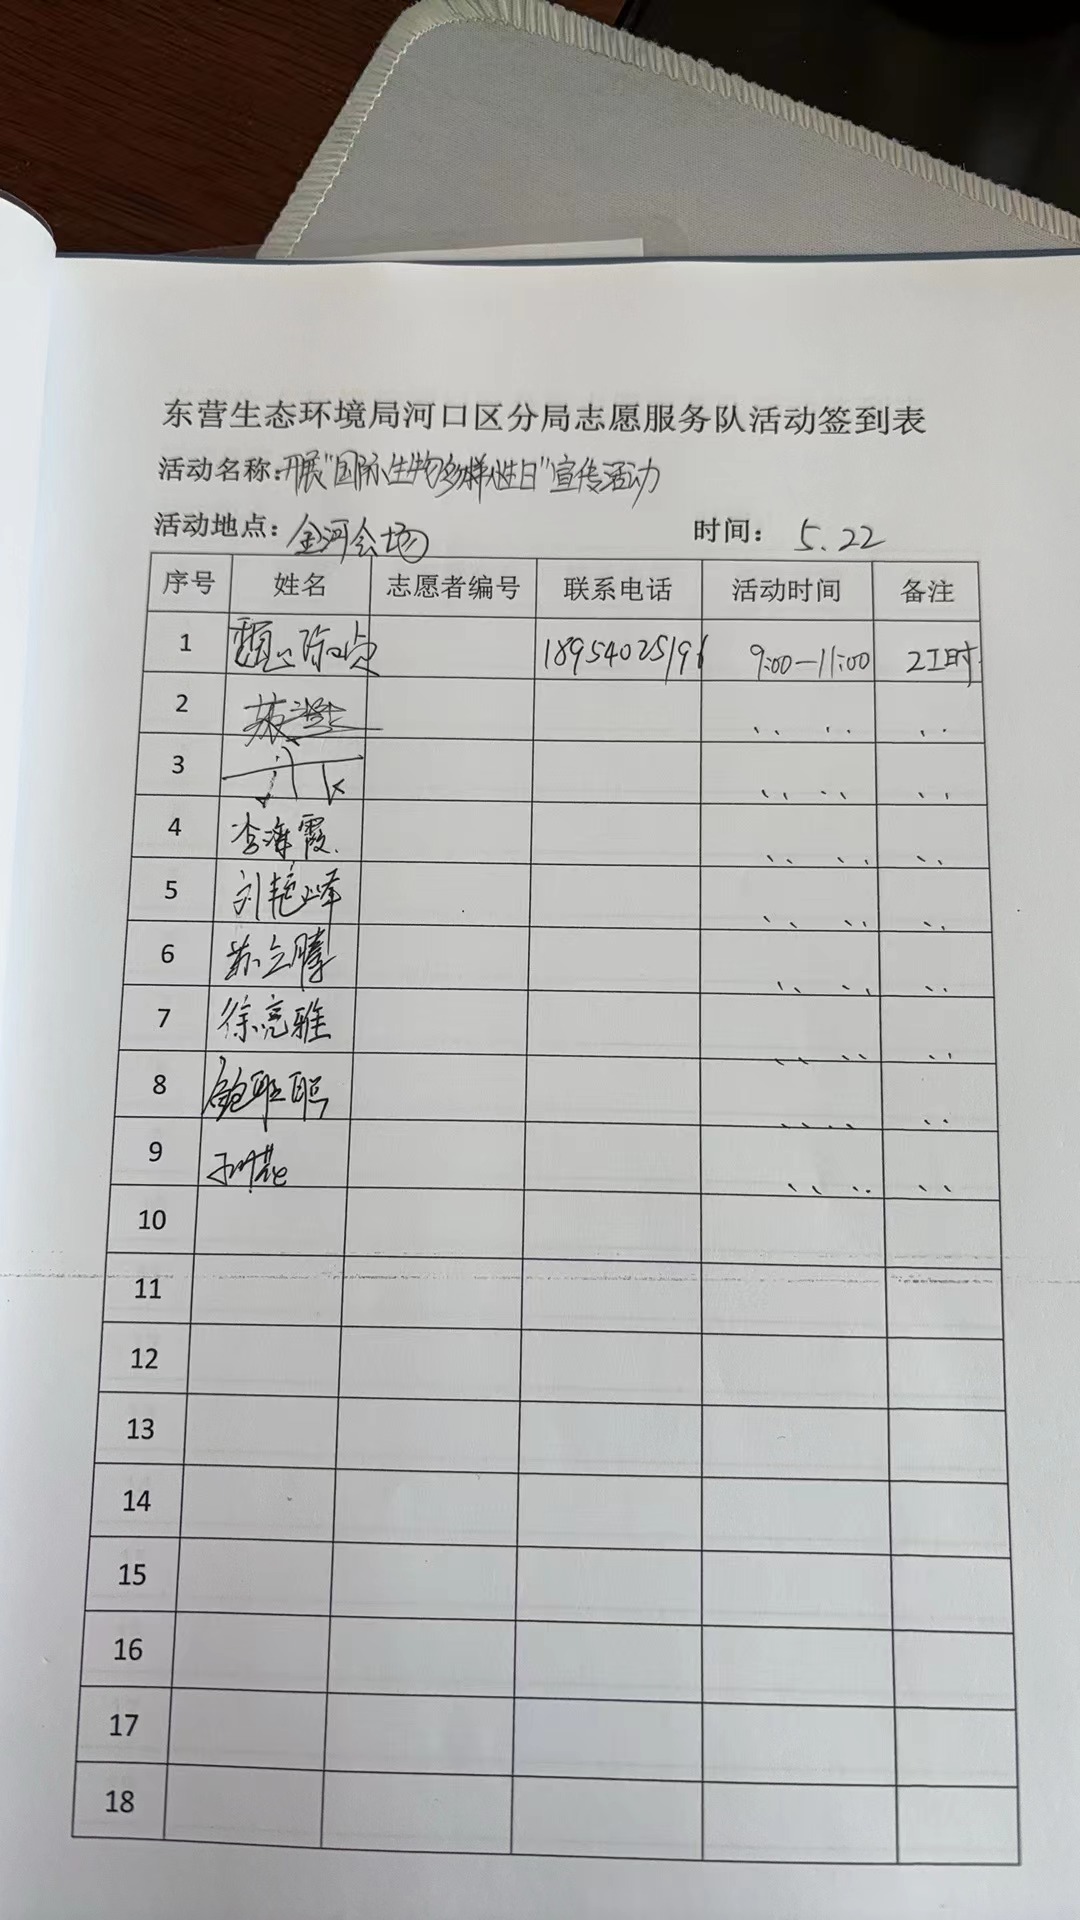 东营生态环境局河口区分局志愿服务队活动签到表
活动名称:开展"国际生物多样性日"宣传活动
活动地点:金河会场 时间: 5.22
序号 姓名 志愿者编号 联系电话 活动时间 备注
1 18954025196 9:00—11:00 2工时
2 、、 、、 、、
3 、、 、、 、、
4 李海霞 、、 、、 、、
5 刘艳峰 、、 、、 、、
6 苏立腾 、、 、、 、、
7 徐亮雅 、、 、、 、、
8 、、 、、 、、
9 、、 、、 、、
10
11
12
13
14
15
16
17
18